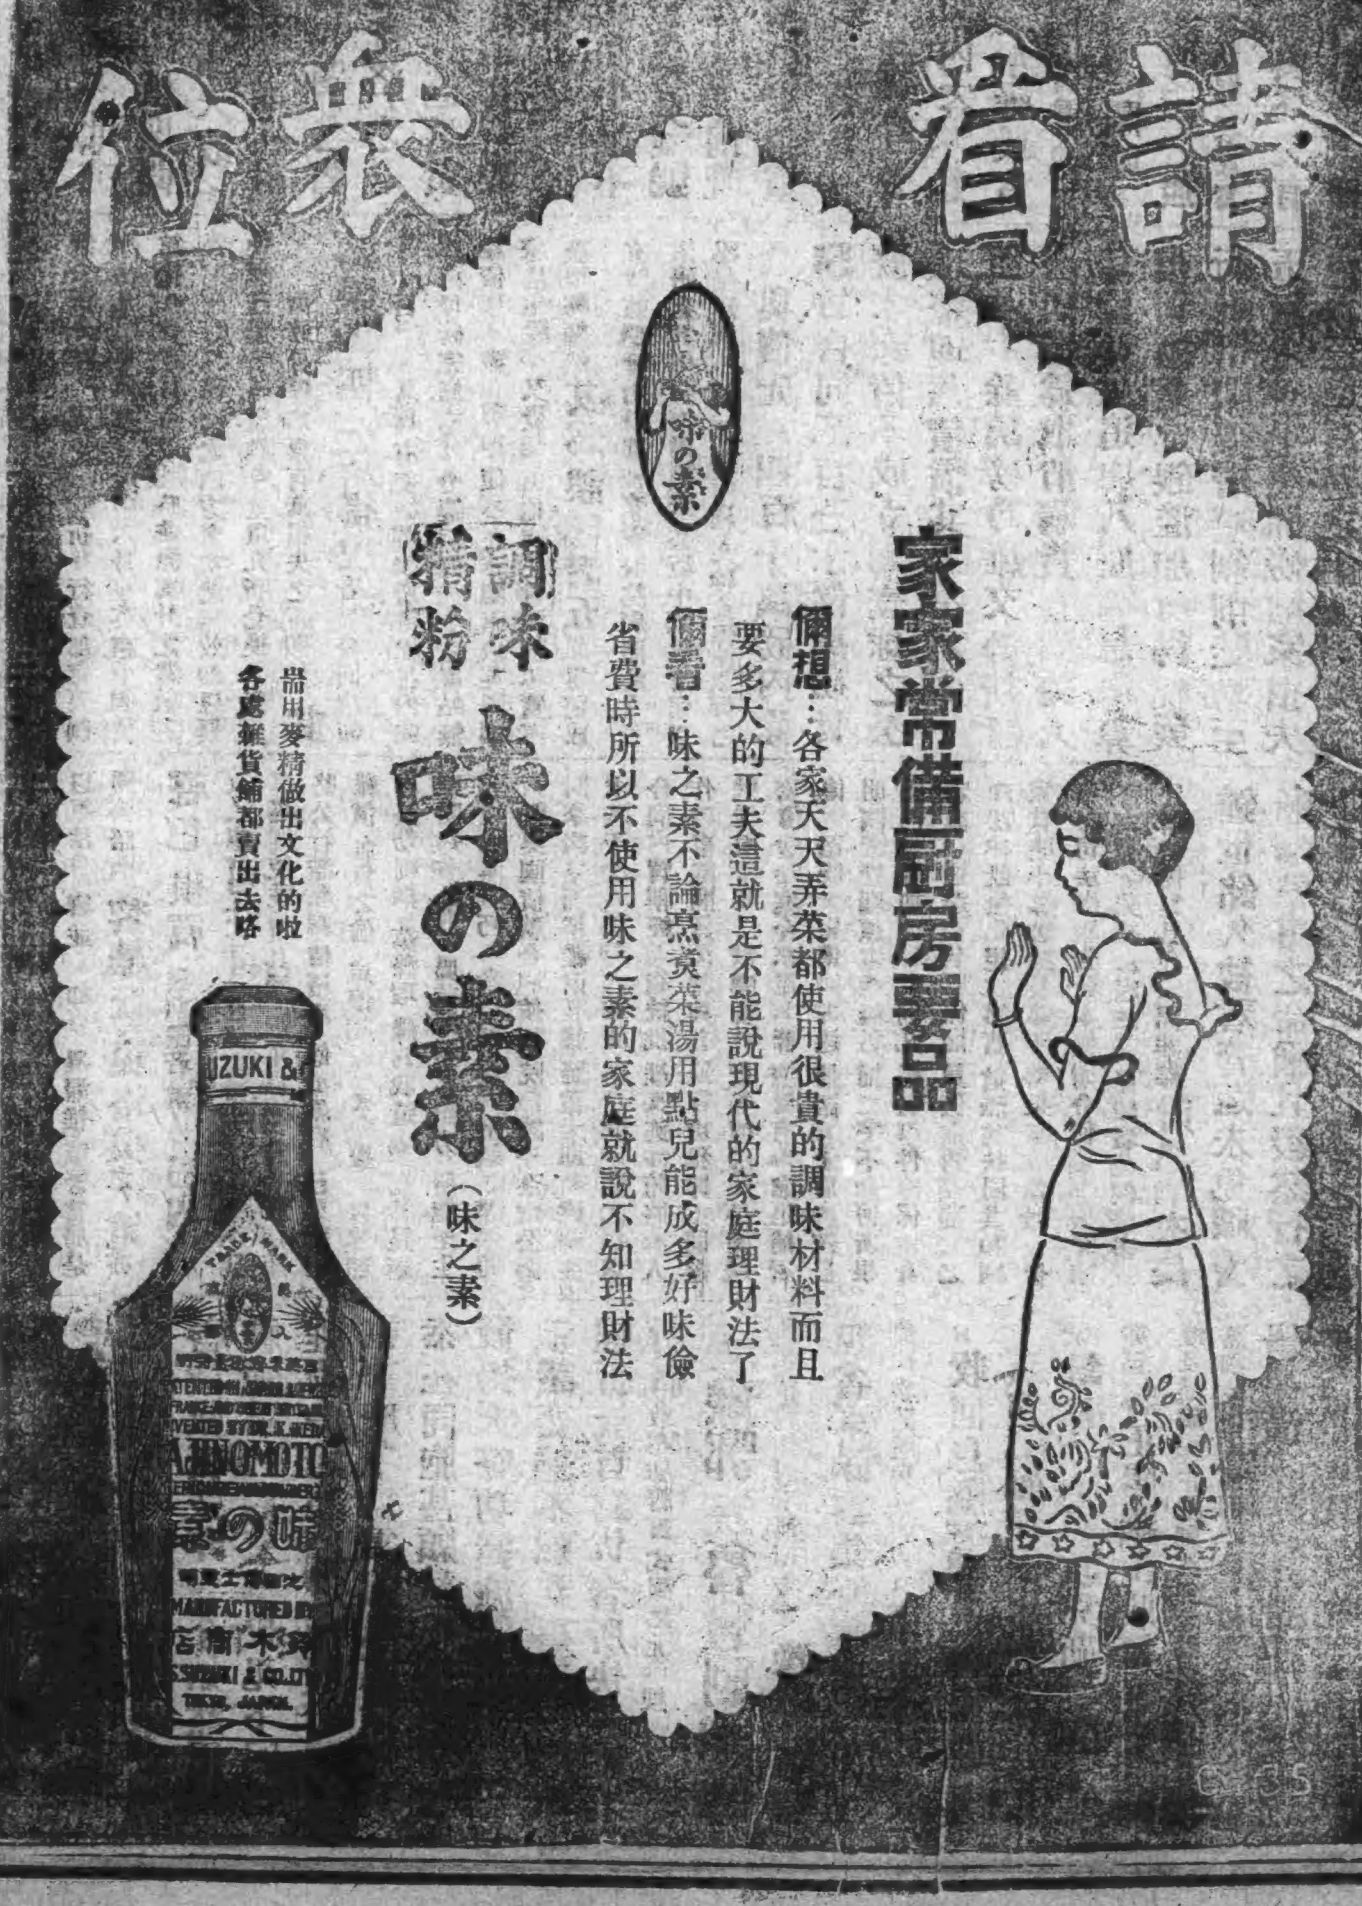 請看
衆位
味の素
家家常備厨房要品
儞想…各家天天弄菜都使用很貴的調味材料而且
要多大的工夫這就是不能說現代的家庭理財法了
儞看…味之素不論烹煑菜湯用點兒能成多好味儉
省費時所以不使用味之素的家庭就說不知理財法
調味
精粉
味の素
(味之素)
耑用麥精做出文化的啦
各處雜貨鋪都賣出去咯
UZUKI &
TRADE MARK
AJINOMOTO
素の味
MANUFACTURED BY
店商木鈴
S. SUZUKI & CO. LTD
TOKYO, JAPAN.
C 35